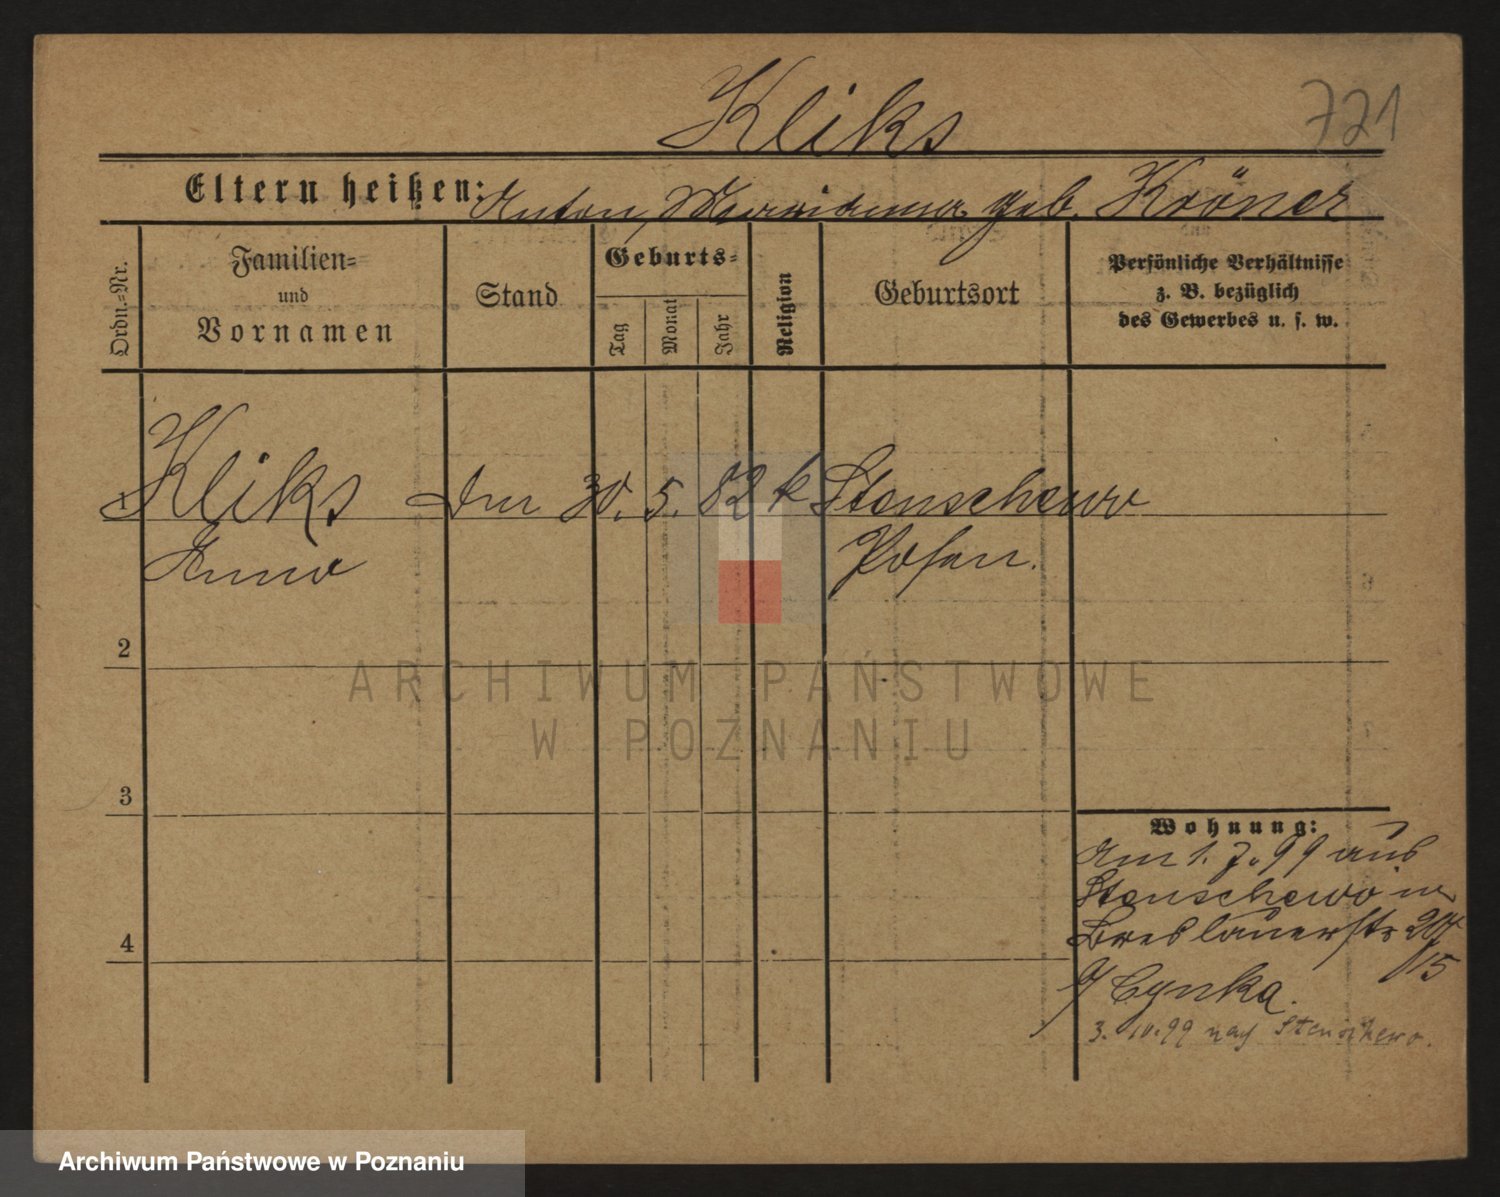 Kliks
721
Eltern heißen: Anton, Marianna geb. Kröner
Ordn.-Nr.
Familien-
und
Vornamen
Stand
Geburts-
Tag
Monat
Jahr
Religion
Geburtsort
Persönliche Verhältnisse
z. B. bezüglich
des Gewerbes u. s. w.
1 Kliks 30. 5. 82 k Stenschewo
Anna Posen.
2
3
4
Wohnung:
Am 1. 7. 99 aus
Stenschewo in
Breslauerstr
Cynka.
3. 10. 99 nach Stenschewo.
ARCHIWUM PAŃSTWOWE
W POZNANIU
Archiwum Państwowe w Poznaniu